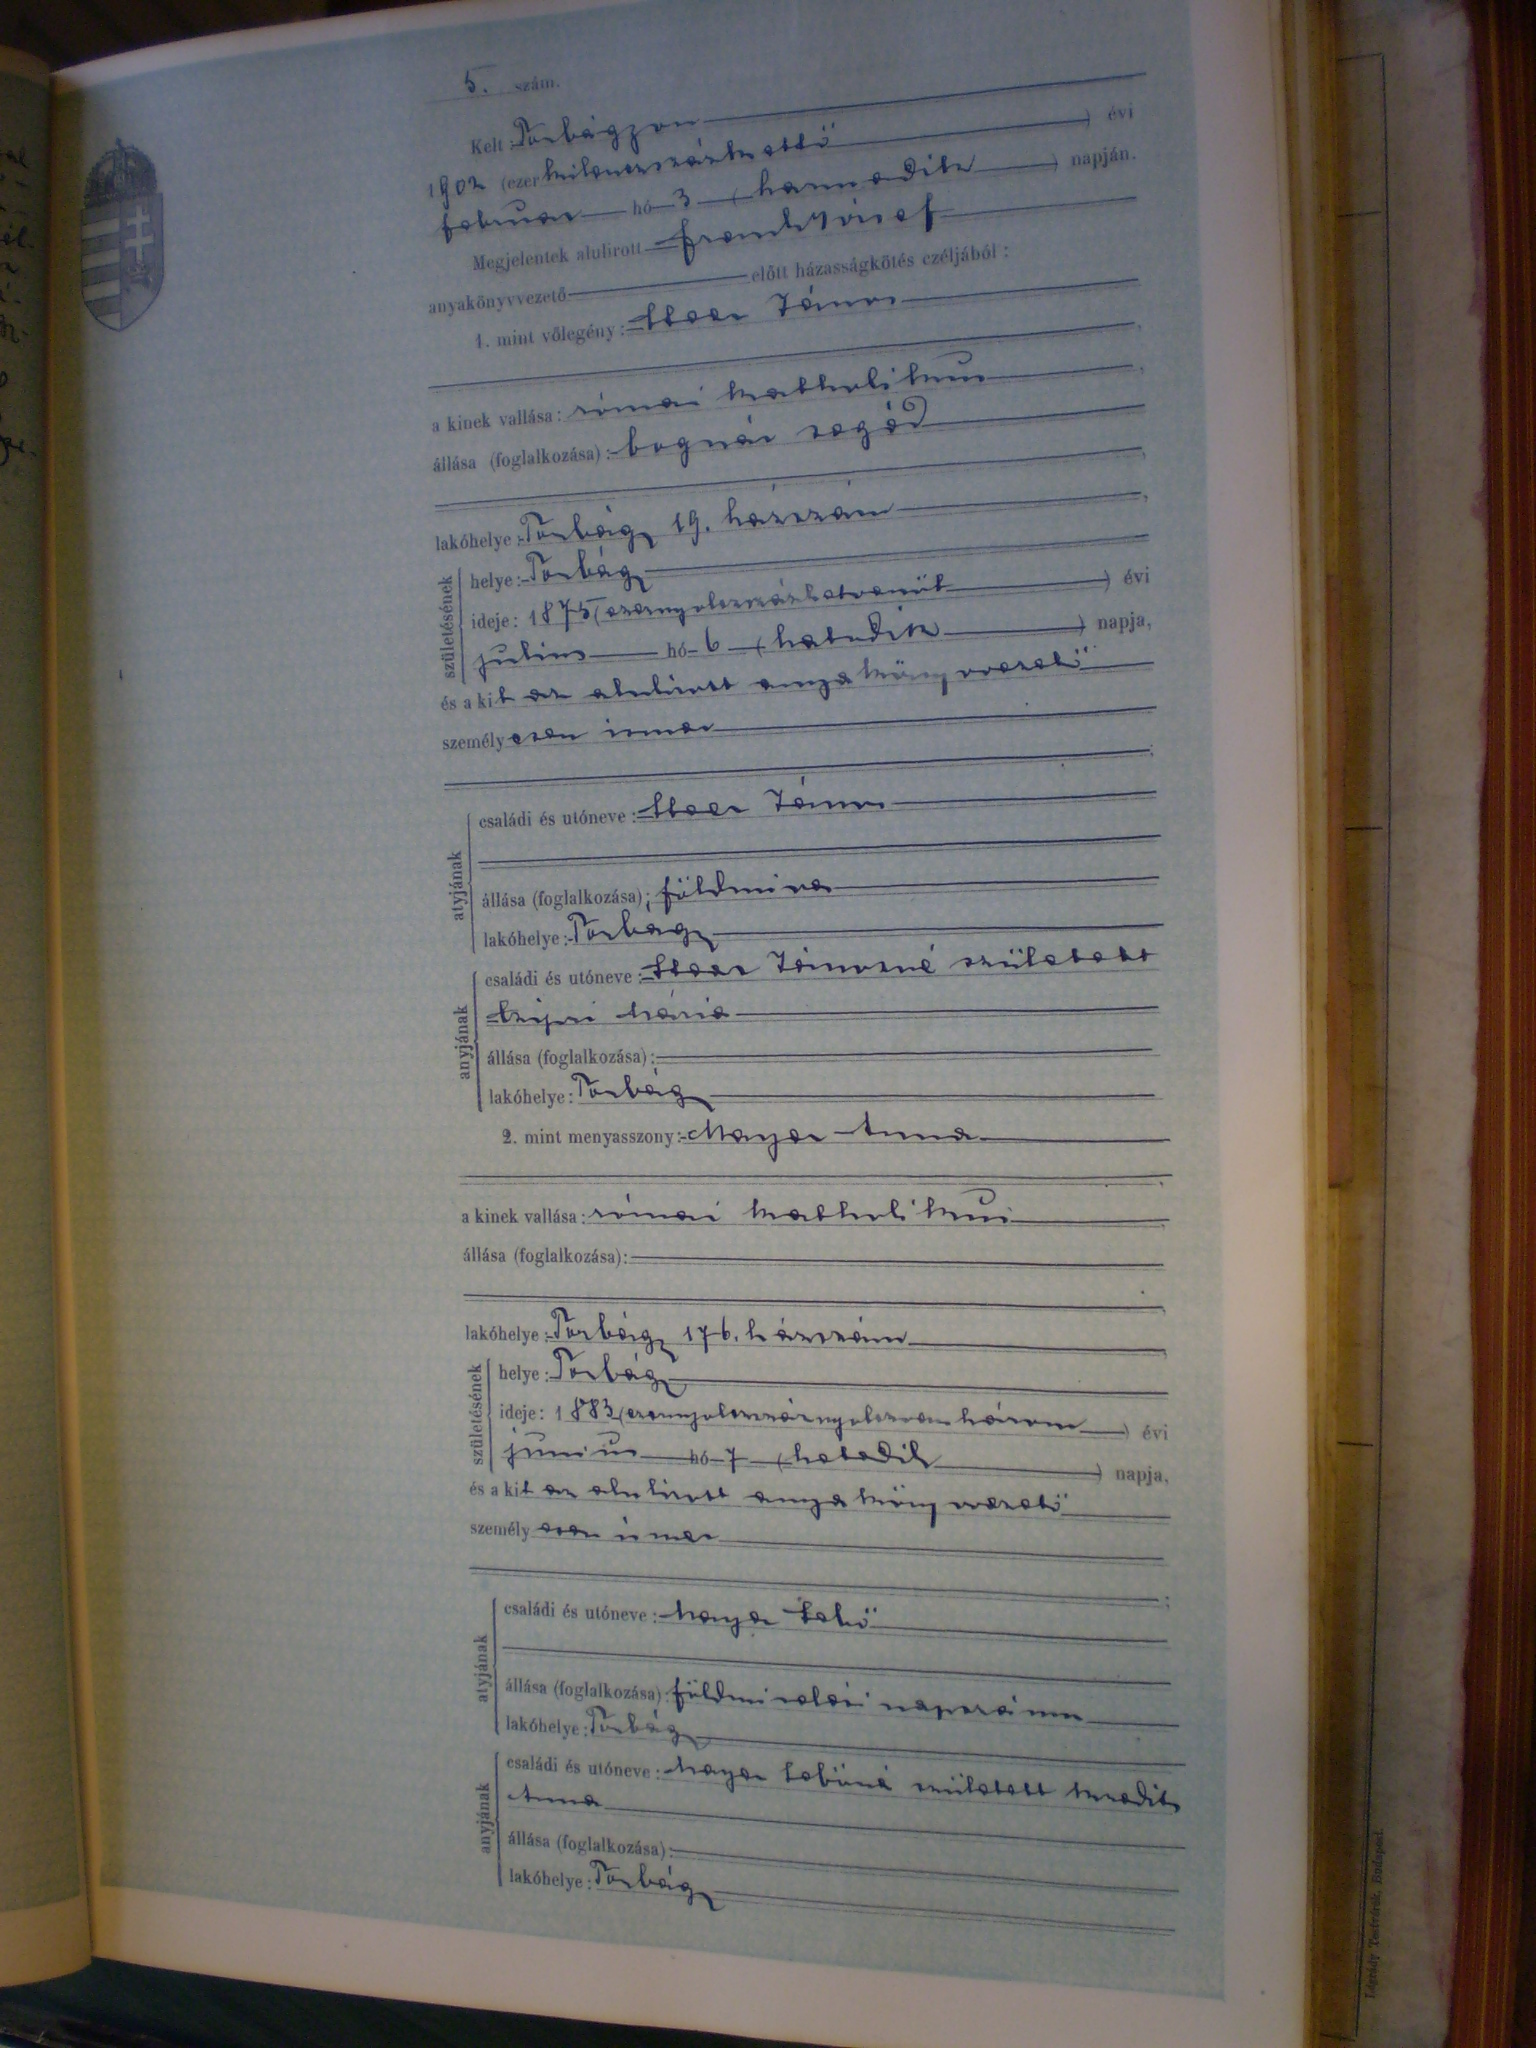 5. szám.
Kelt: Torbágyon
1902 (ezer kilenczszázkettő) évi
februar hó 3 (harmadik) napján.
Megjelentek alulirott Frank József
anyakönyvvezető előtt házasságkötés czéljából:
1. mint vőlegény: János
a kinek vallása: római katholikus
állása (foglalkozása): bognár segéd
lakóhelye: Torbágy 19. házszám
születésének
helye: Torbágy
ideje: 1875 (ezernyolczszázhetvenöt) évi
julius hó 6 (hatodik) napja,
és a kit az alulirott anyakönyvvezető
személyesen ismer
atyjának
családi és utóneve: János
állása (foglalkozása): földmives
lakóhelye: Torbagy
anyjának
családi és utóneve: Jánosné született
Mária
állása (foglalkozása):
lakóhelye: Torbágy
2. mint menyasszony: Mayer Anna
a kinek vallása: római katholikus
állása (foglalkozása):
lakóhelye: Torbágy 176. házszám
születésének
helye: Torbágy
ideje: 1883 (ezernyolczszáznyolczvanhárom) évi
junius hó 7 (hetedik) napja,
és a kit az alulirott anyakönyvvezető
személyesen ismer
atyjának
családi és utóneve: Mayer
állása (foglalkozása): földmivelési napszámos
lakóhelye: Torbágy
anyjának
családi és utóneve: Mayer született
Anna
állása (foglalkozása):
lakóhelye: Torbágy
Légrády Testvérek, Budapest.